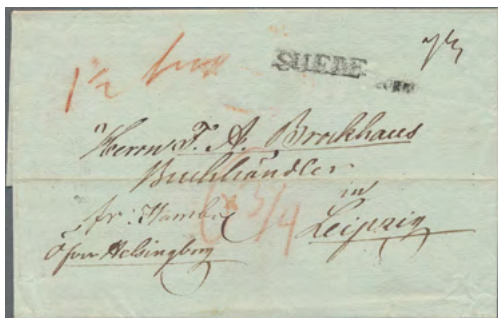 1½
SUEDE
Herrn F. A. Brockhaus
Buchhändler
in
fr: Hambg
6¾
Leipzig
öfver Helsingborg